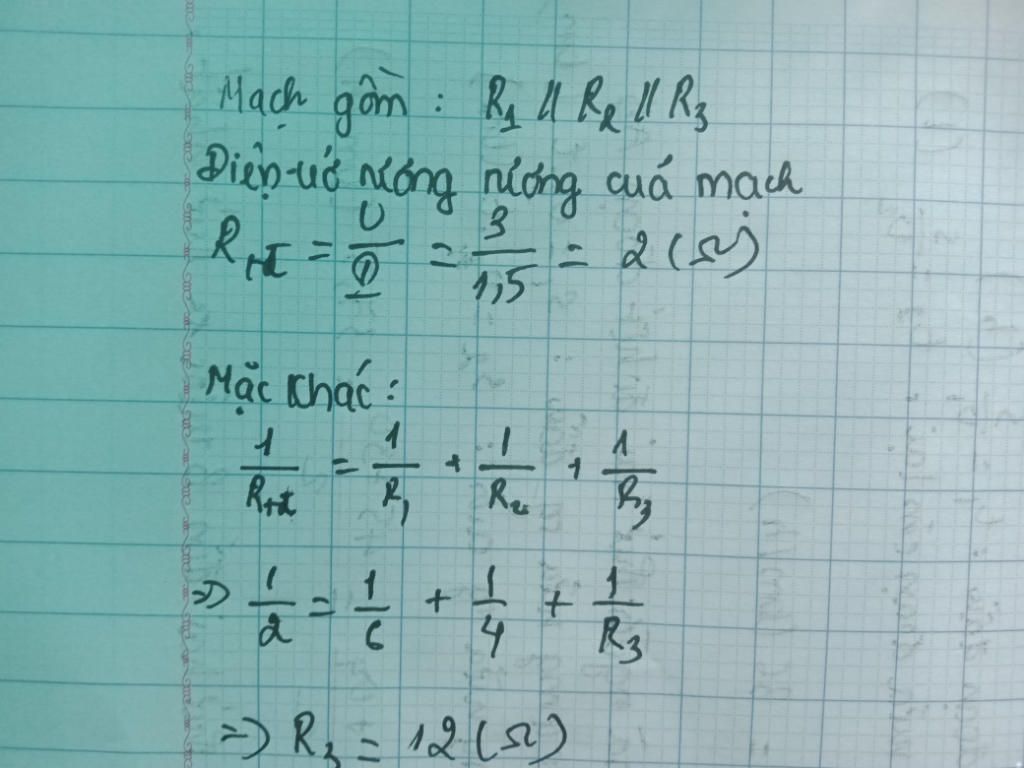 Mạch gồm : R1 // R2 // R3
Điện-uớ nướng nướng cuả mạch
Rtđ = U/I = 3/1,5 = 2 (Ω)
Mặc Khác :
1/Rtđ = 1/R1 + 1/R2 + 1/R3
=> 1/2 = 1/6 + 1/4 + 1/R3
=> R3 = 12 (Ω)